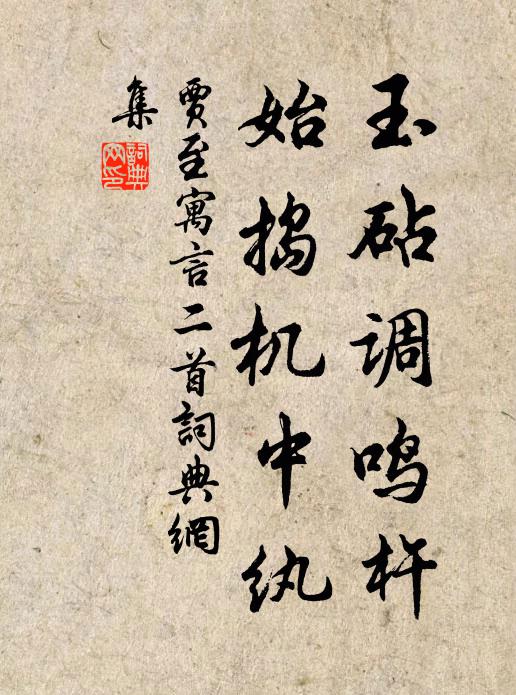 玉砧调鸣杵
始捣机中纨
贾至寓言二首詞典網
集
詞典
网印